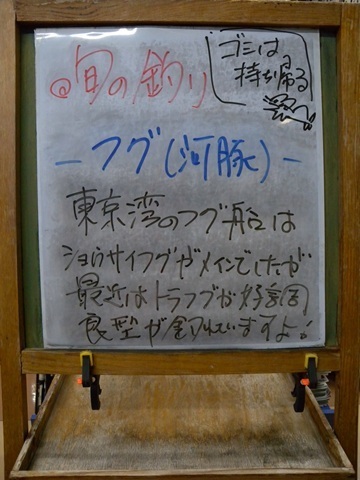 ◎旬の釣り
ゴミは
持ち帰る
－フグ(河豚)－
東京湾のフグ船は
ショウサイフグがメインでしたが
最近はトラフグが好調
良型が釣れていますよ!